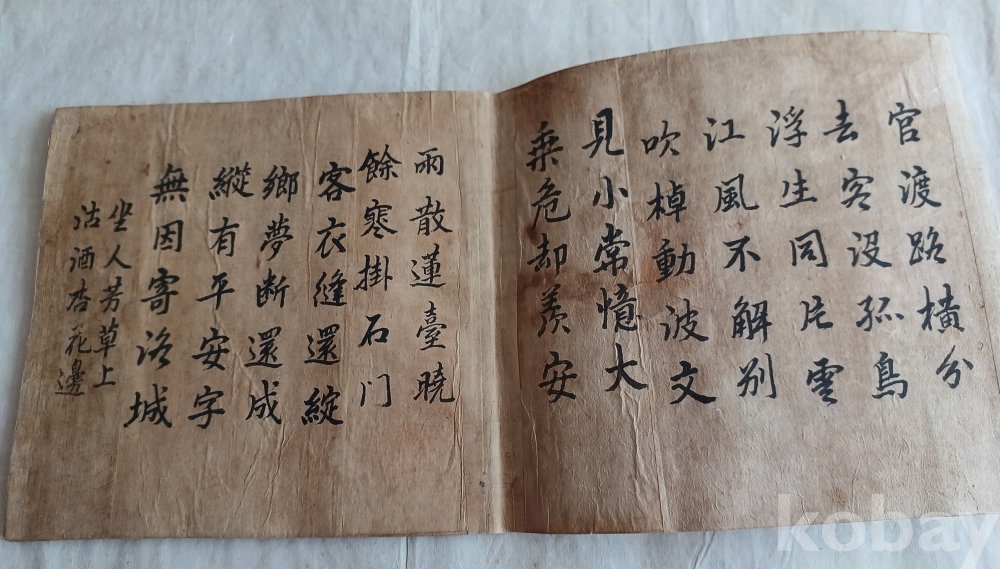 官渡路橫分
去客沒孤鳥
浮生同片雲
江風不解別
吹棹動波文
見小常憶大
乘危却羨安
雨散蓮臺曉
餘寒掛石门
客衣縫還綻
鄉夢断還成
縱有平安字
無因寄洛城
坐人芳草上
沽酒杏花邊
kobay